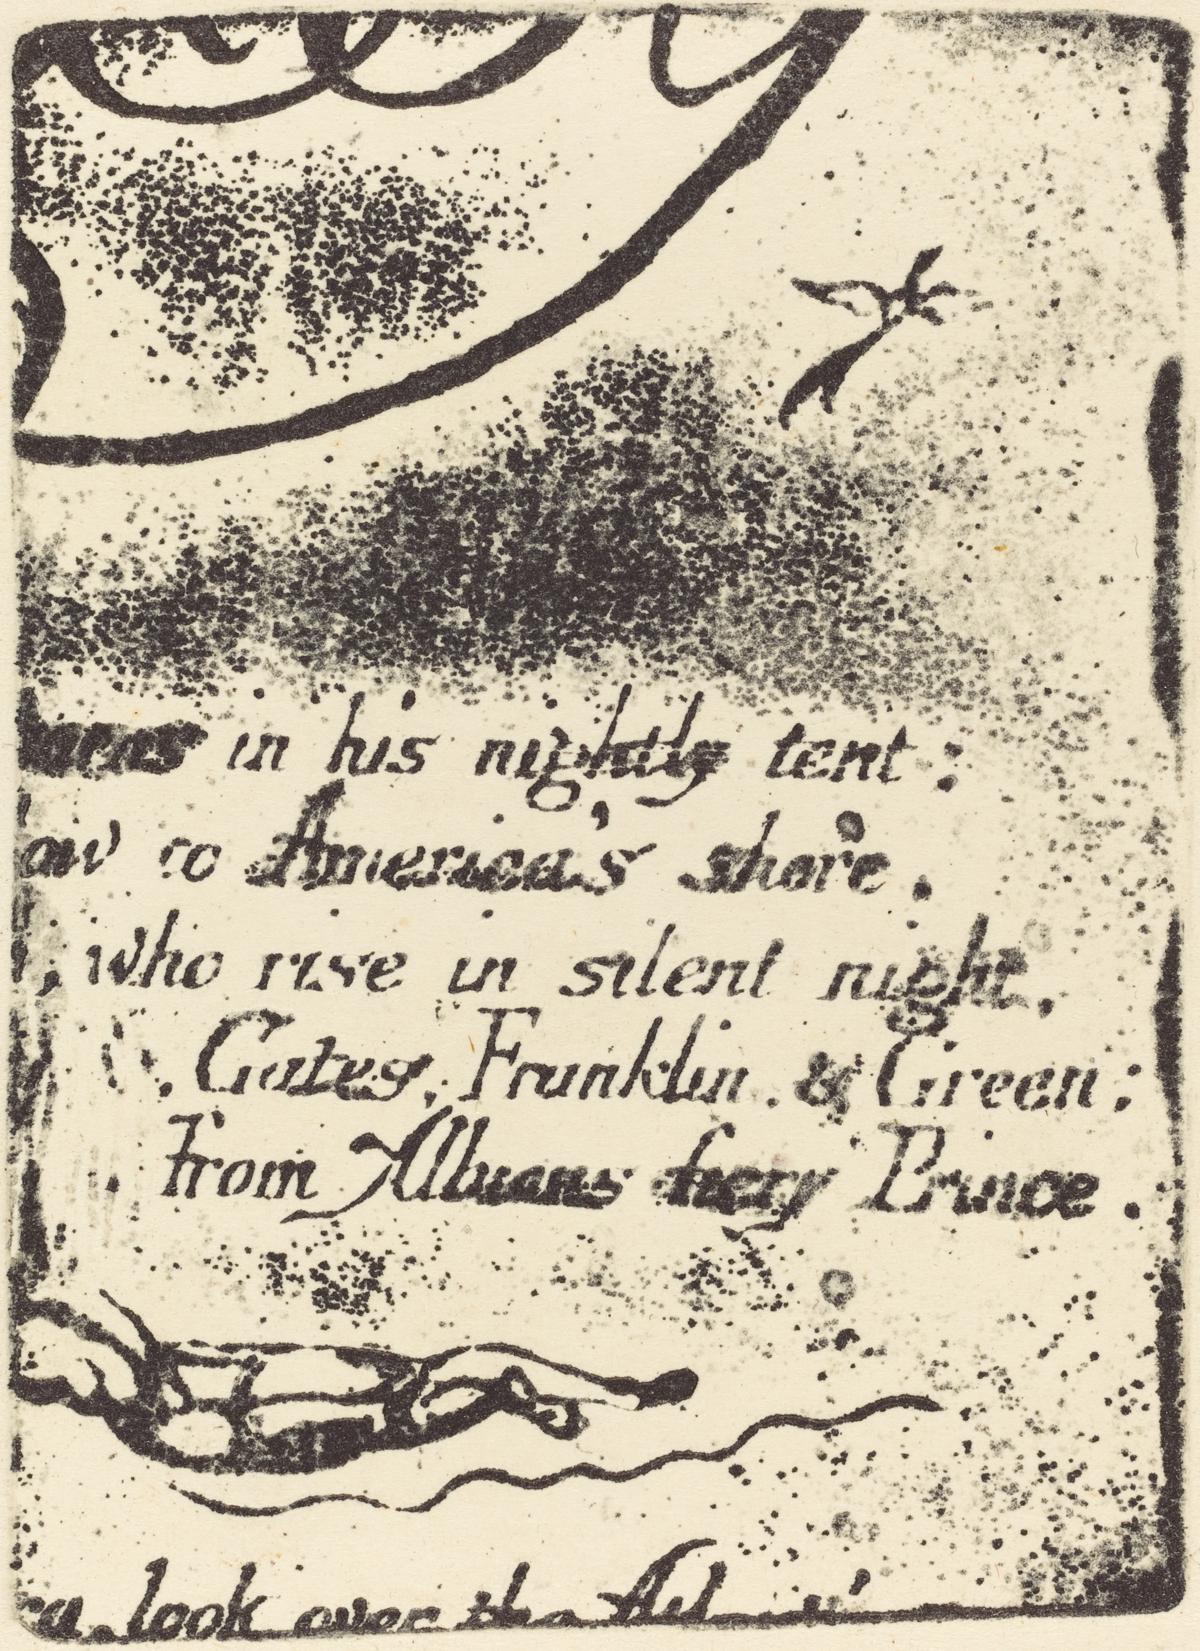 burns in his nightly tent :
low to America's shore.
, who rise in silent night,
. Gates, Franklin. & Green;
. From Albions fiery Prince.
ca look over the